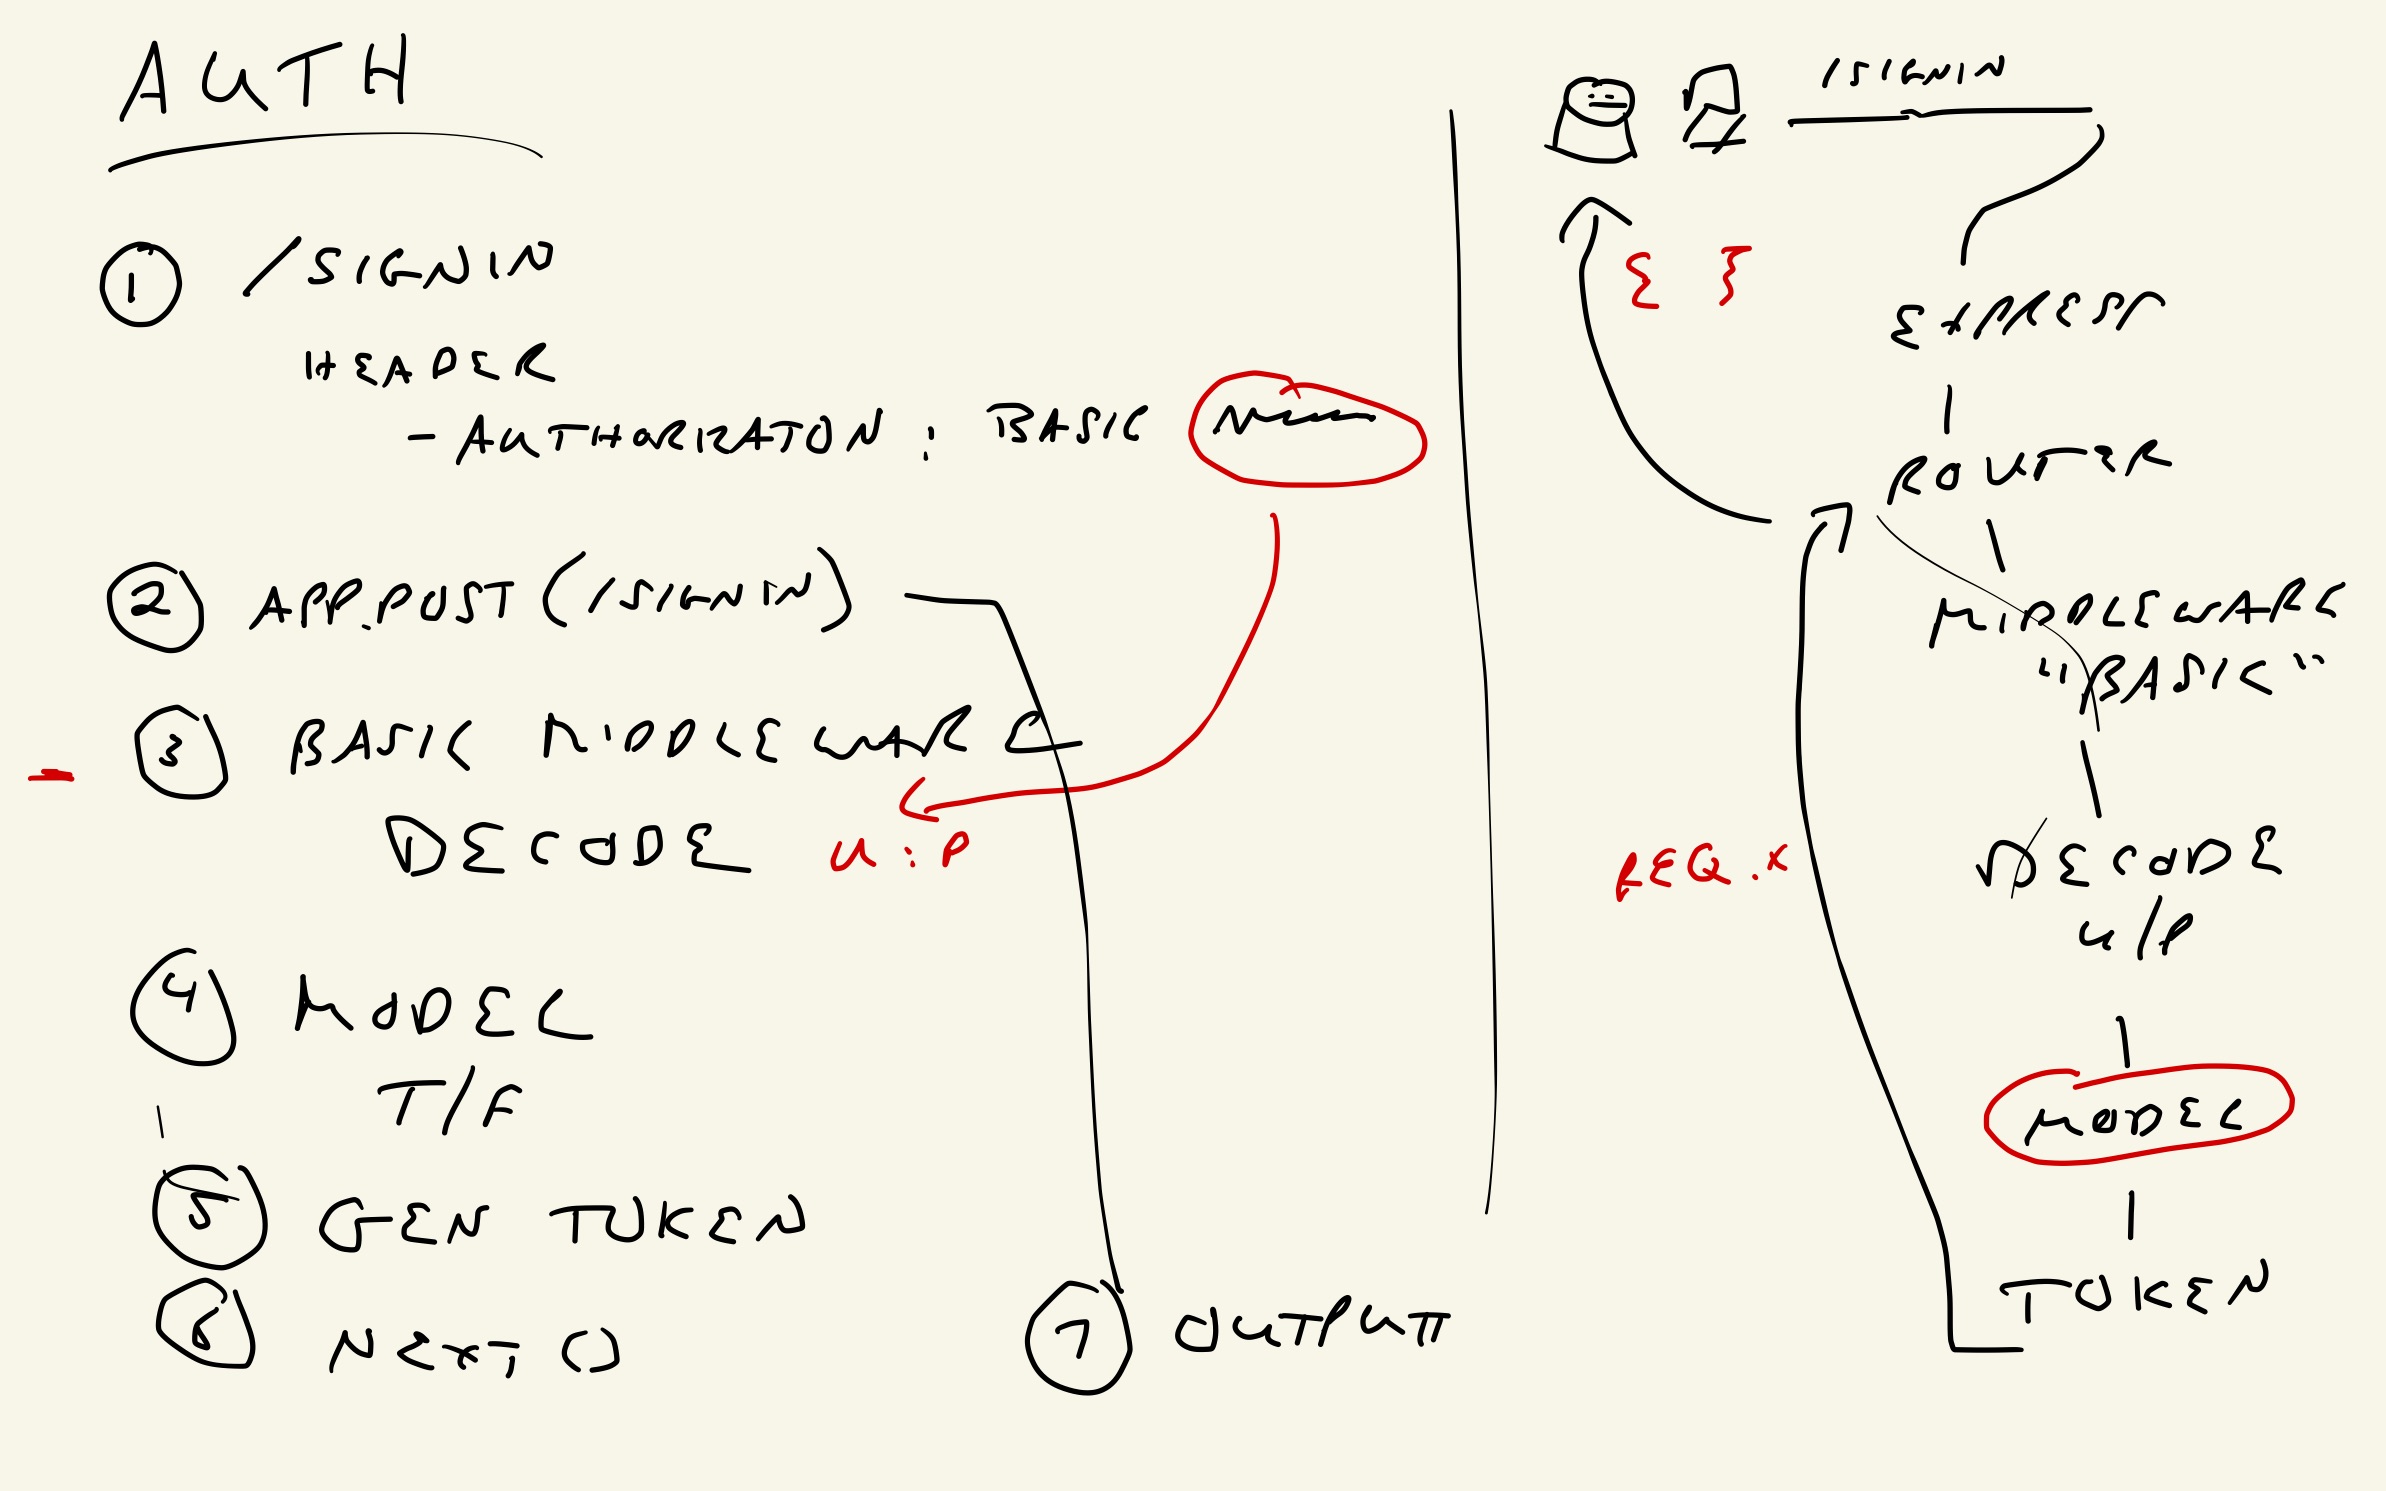 AUTH
1 /SIGNIN
HEADER
- AUTHORIZATON : BASIC
2 APP.POST(/SIGNIN)
3 BASIC MIDDLEWARE
DECODE U:P
4 MODEL
T/F
5 GEN TOKEN
6 NEXT()
7 OUTPUT
/SIGNIN
{ }
EXPRESS
ROUTER
MIDDLEWARE
"BASIC"
REQ.X
DECODE
U/P
MODEL
TOKEN